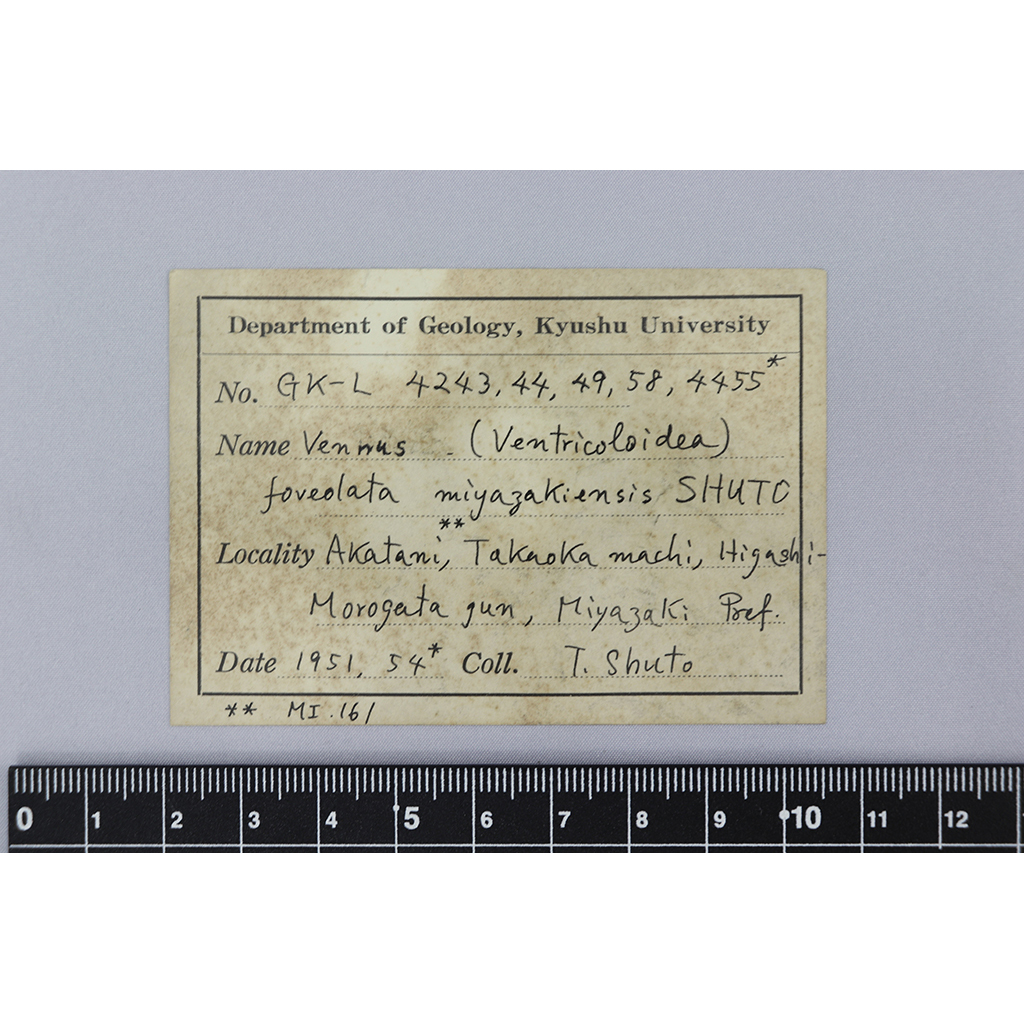 Department of Geology, Kyushu University
No. GK-L 4243, 44, 49, 58, 4455*
Name Vennus (Ventricoloidea)
foveolata miyazakiensis SHUTO
Locality Akatani,** Takaoka machi, Higashi-
Morogata gun, Miyazaki Pref.
Date 1951, 54* Coll. T. Shuto
** MI.161
0 1 2 3 4 5 6 7 8 9 10 11 12